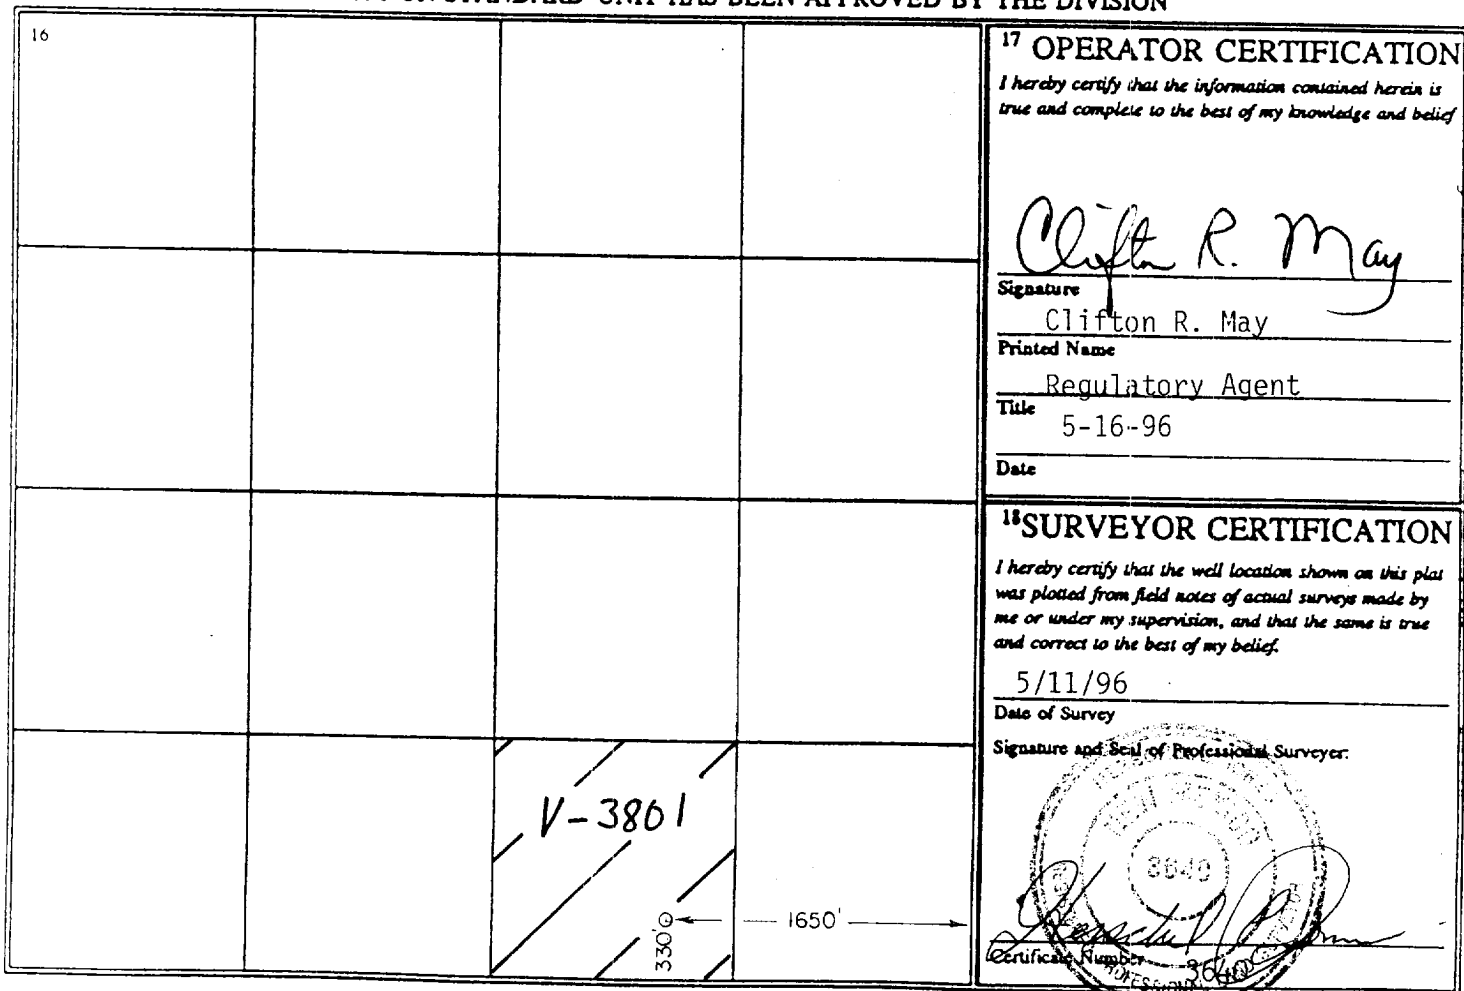 STANDARD UNIT HAS BEEN APPROVED BY THE DIVISION
16
V-3801
330'
1650'
17 OPERATOR CERTIFICATION
I hereby certify that the information contained herein is
true and complete to the best of my knowledge and belief
Clifton R. May
Signature
Clifton R. May
Printed Name
Regulatory Agent
Title
5-16-96
Date
18 SURVEYOR CERTIFICATION
I hereby certify that the well location shown on this plat
was plotted from field notes of actual surveys made by
me or under my supervision, and that the same is true
and correct to the best of my belief.
5/11/96
Date of Survey
Signature and Seal of Professional Surveyer:
NEW MEXICO
3640
Certificate Number 3640
PROFESSIONAL